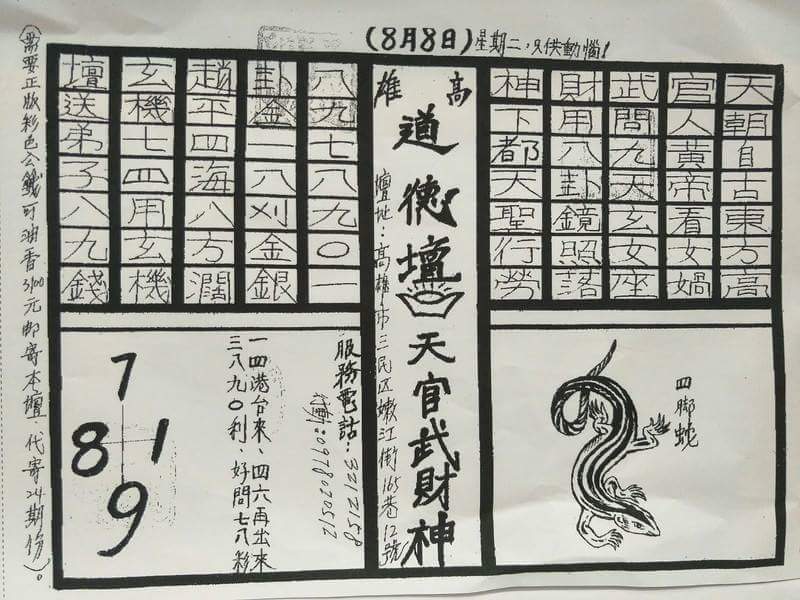 (8月8日)星期二,只供動惱!
天朝自古東方高
官人黃帝看女媧
武問九天玄女座
財用八卦鏡照落
神下都天聖行勞
四脚蛇
高雄
道德壇 天官武財神
壇地:高雄市三民区嫩江街165巷12號
八九七八九〇一
卦金一八刈金銀
趙平四海八方濶
玄機七四用玄機
壇送弟子八九錢
服務電話:3212158
行動:0978020512
一四港台來、四六再出來
三八九0利、好問七八彩
7
8 1
9
(需要正版彩色公錢可油香3100元邮寄本壇、代寄24期份)。